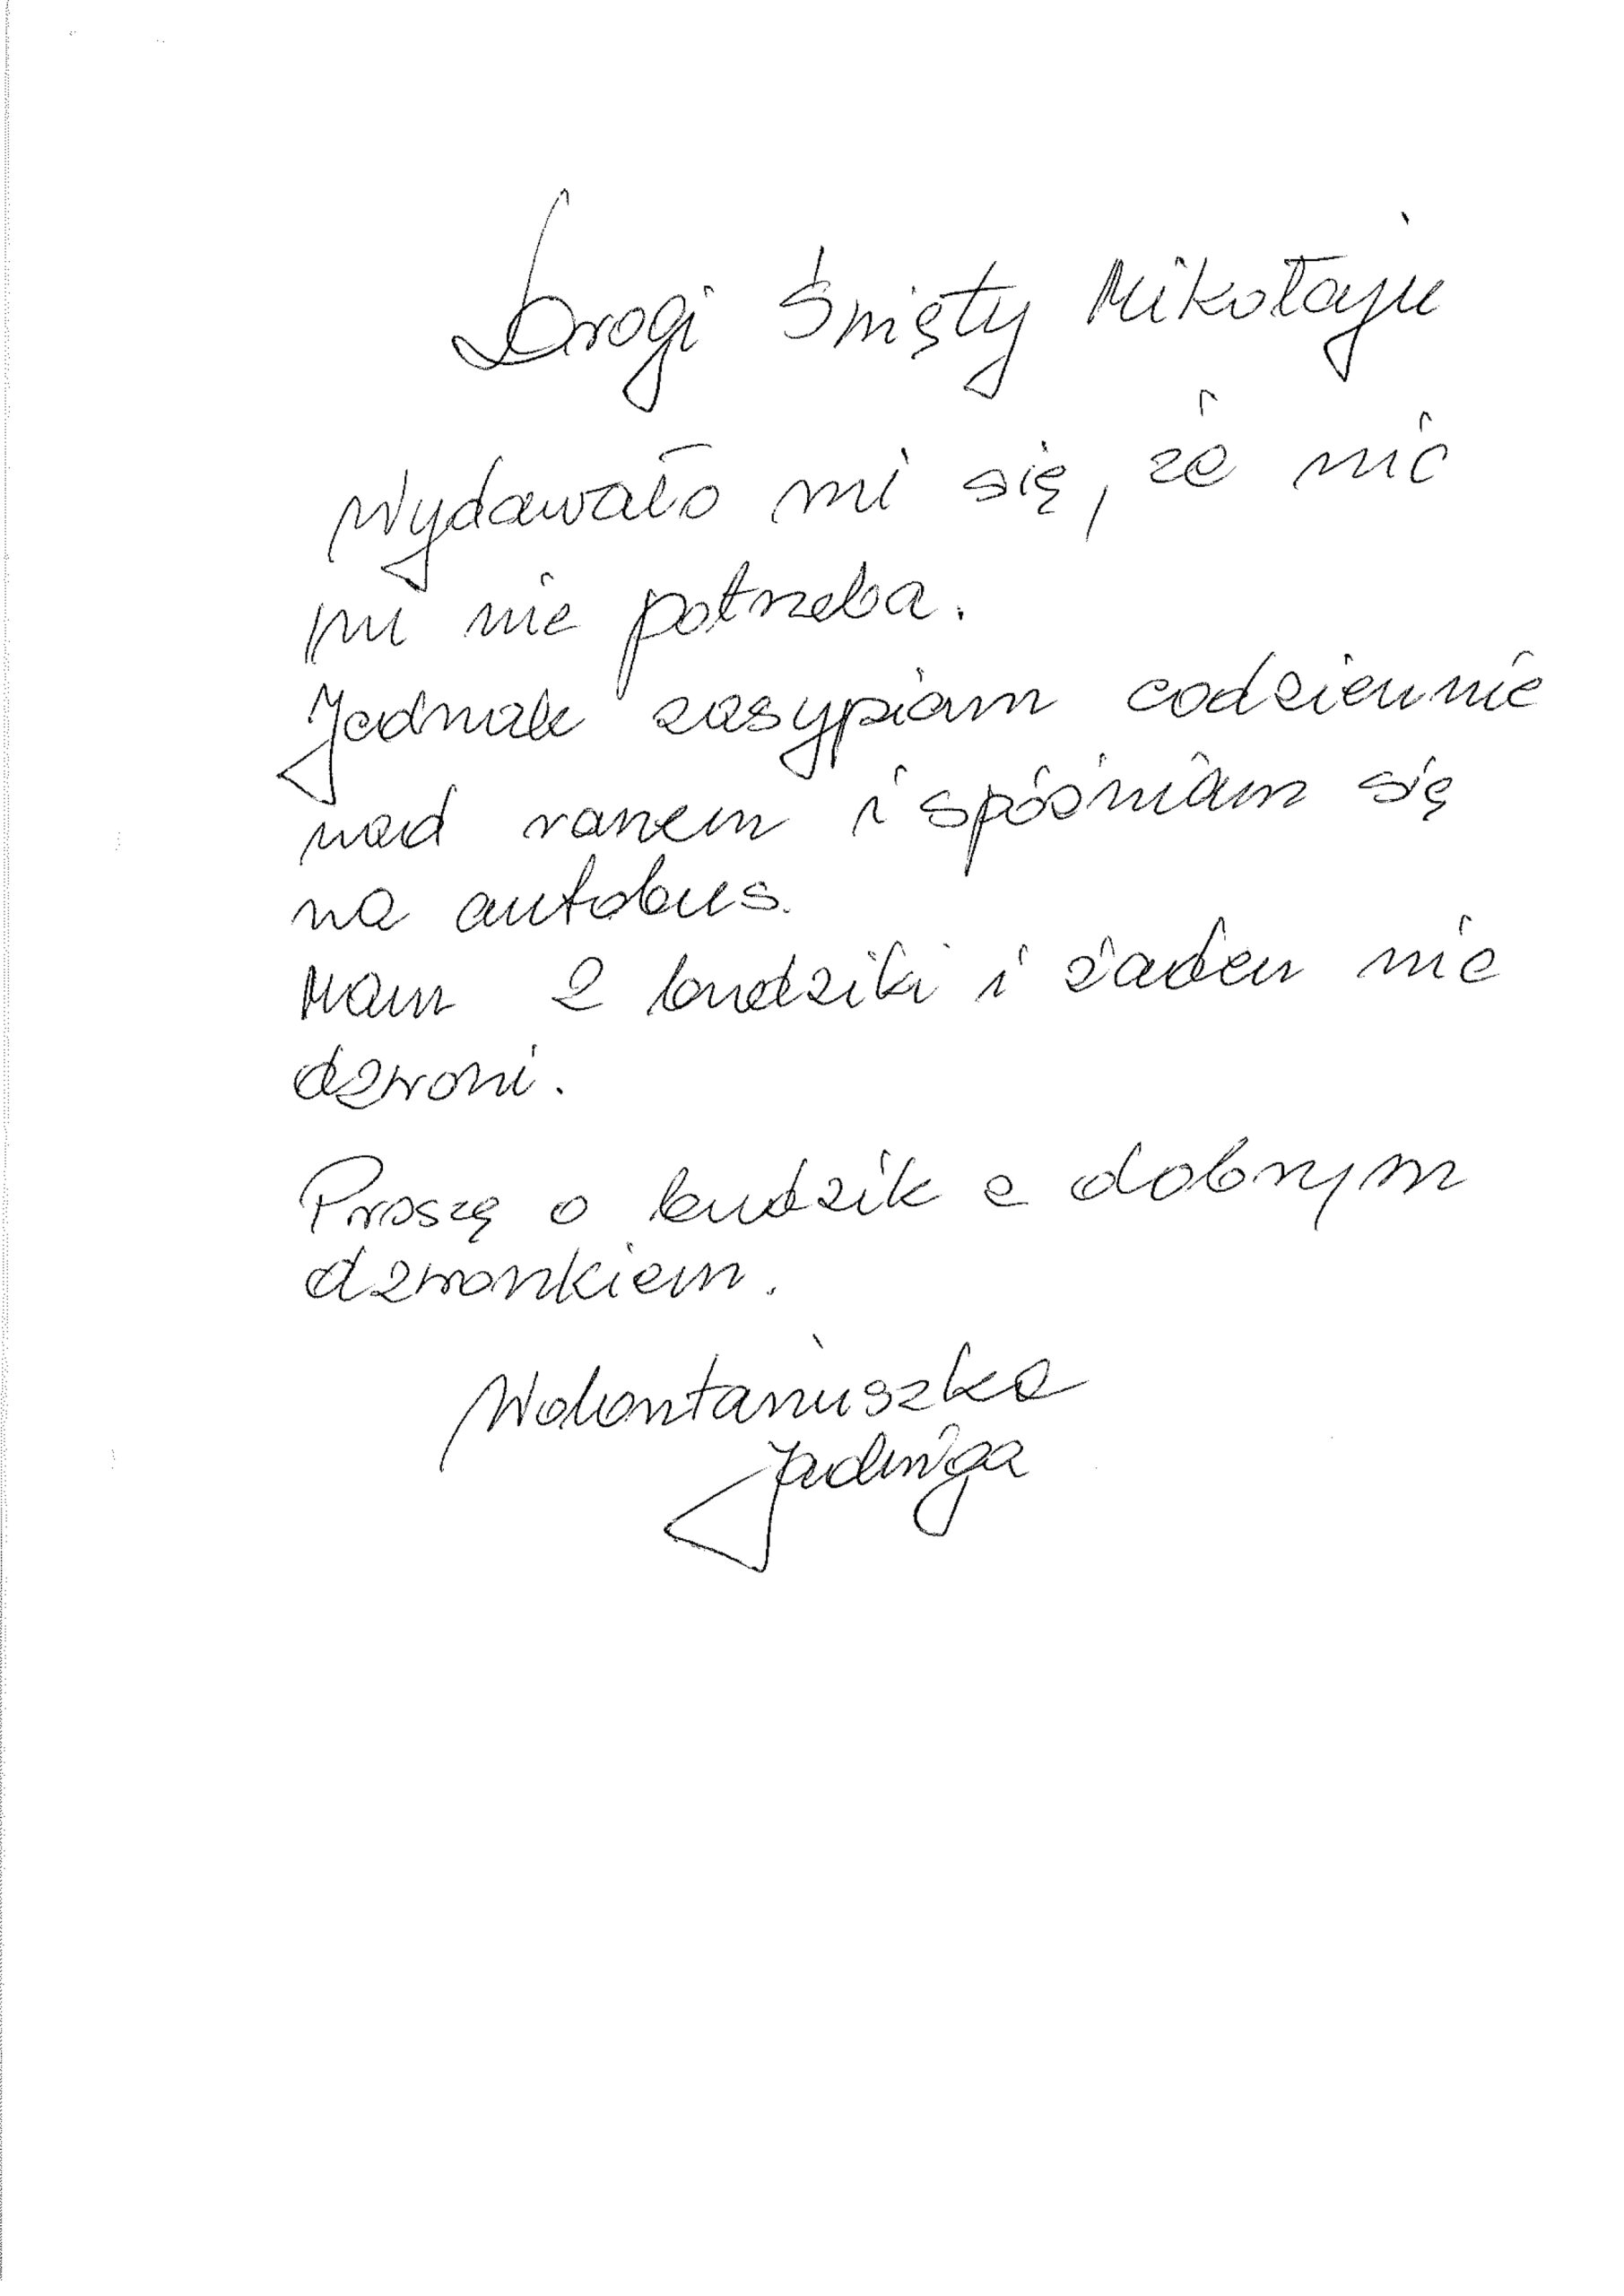 Drogi Święty Mikołaju
Wydawało mi się, że nic
mi nie potrzeba.
Jednak zasypiam codziennie
nad ranem i spóźniam się
na autobus.
Mam 2 budziki i żaden nie
dzwoni.
Proszę o budzik z dobrym
dzwonkiem.
Wolontariuszka
Jadwiga